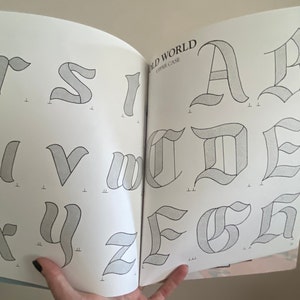 r s t
v v w
x y z
OLD WORLD
UPPER CASE
A B
C D E
F G H